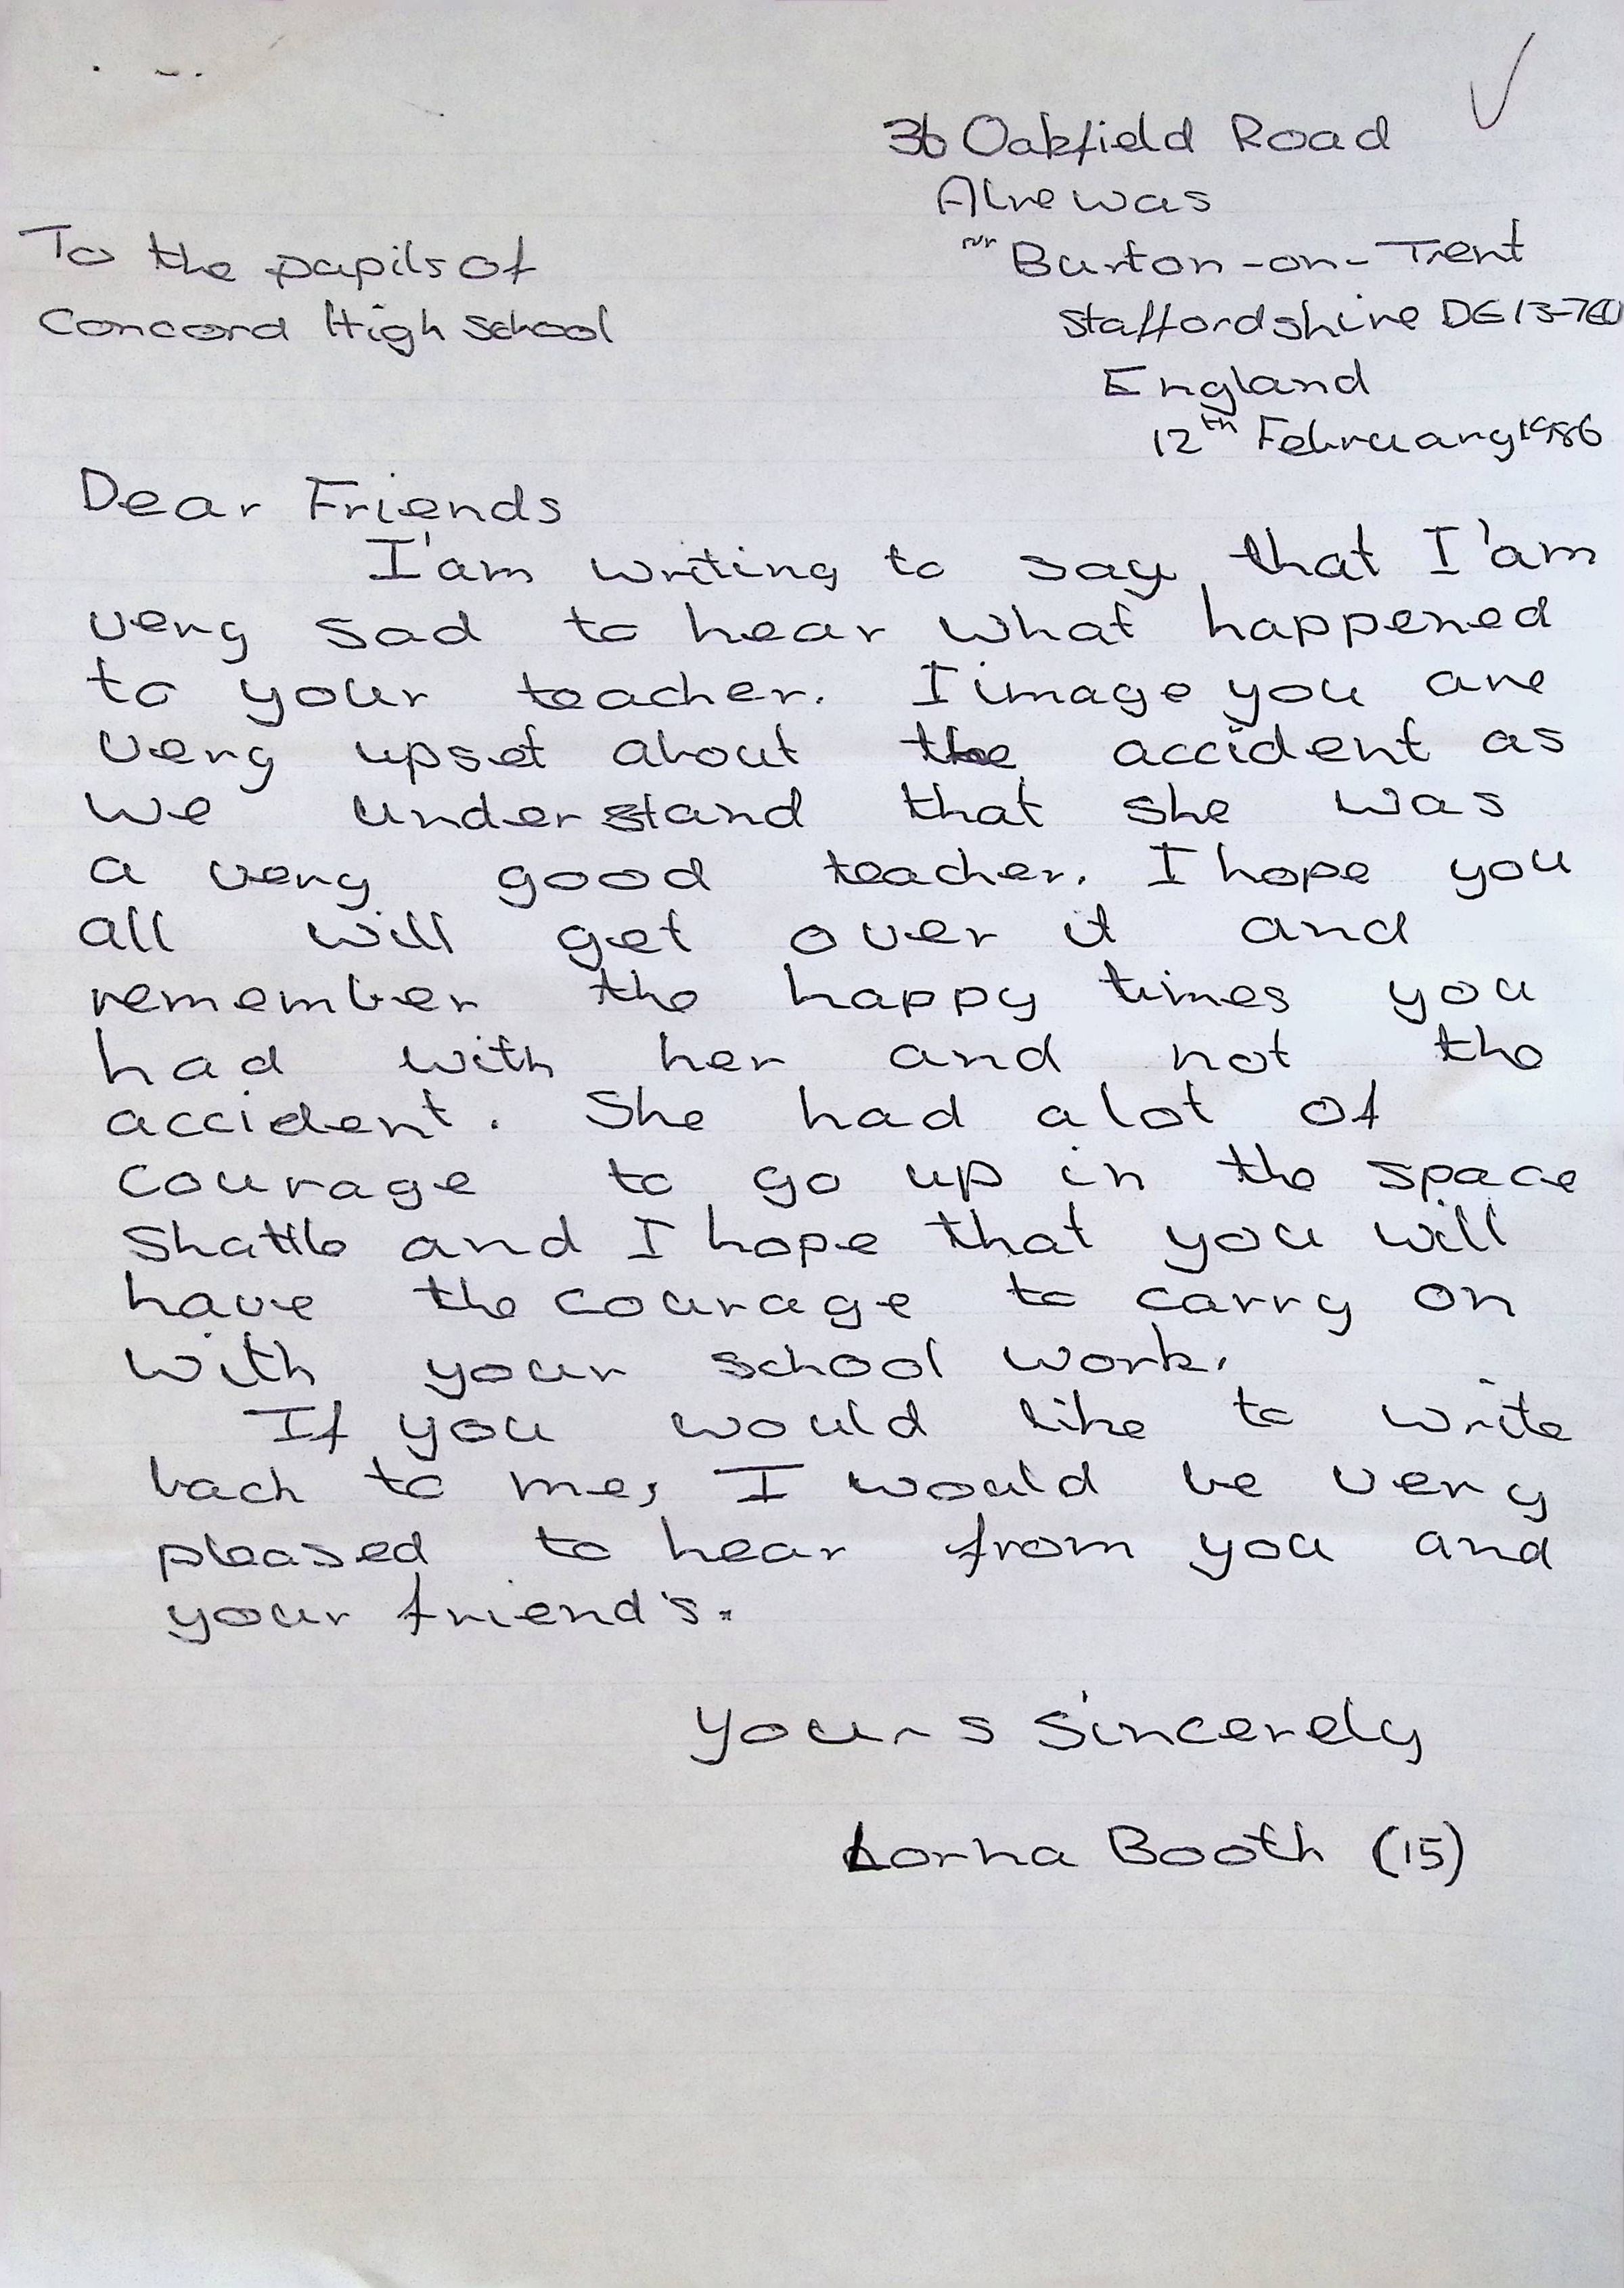 36 Oakfield Road
Alrewas
nr Burton-on-Trent
Staffordshire DE13-7
England
12th February 1986
To the pupils of
Concord High School
Dear Friends
I'am writing to say that I'am
very sad to hear what happened
to your teacher. I image you are
very upset about the accident as
we understand that she was
a very good teacher. I hope you
all will get over it and
remember the happy times you
had with her and not the
accident. She had alot of
courage to go up in the space
Shuttle and I hope that you will
have the courage to carry on
with your school work.
If you would like to write
back to me, I would be very
pleased to hear from you and
your friend's.
Yours Sincerely
Lorna Booth (15)